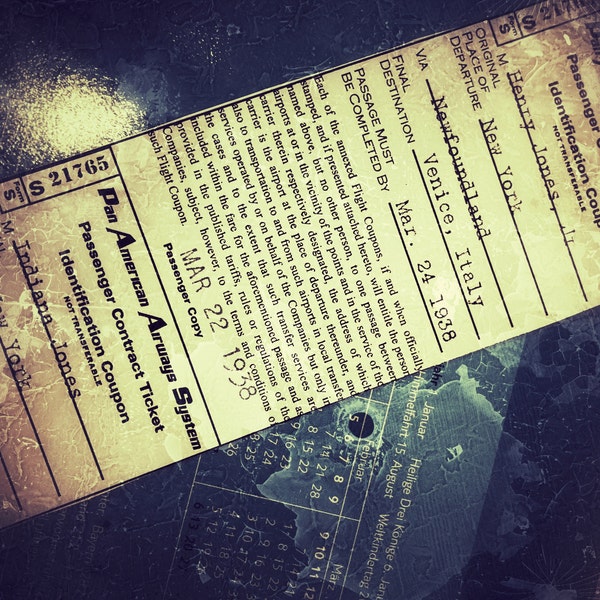 Form
S 217
Passenger Co
Identification Coupon
NOT TRANSFERABLE
M Henry Jones, Jr
ORIGINAL
PLACE OF
DEPARTURE New York
VIA Newfoundland
FINAL
DESTINATION Venice, Italy
PASSAGE MUST
BE COMPLETED BY Mar. 24 1938
Each of the annexed Flight Coupons, if and when officially
stamped, and if presented attached hereto, will entitle the person
named above, but no other person, to one passage between
airports at or in the vicinity of the points and in the service of the
carrier therein respectively designated, the address of which
carrier is the airport at the place of departure thereunder, and
also to transportation to and from such airports in local transfer
services operated by or on behalf of the Companies, but only in
the cases and to the extent that such transfer services are
included within the fare for the aforementioned passage and as
provided in the published tariffs, rules or regulations of the
Companies, subject, however, to the terms and conditions of
such Flight Coupon.
Passenger Copy
MAR 22 1938
Form
S 21765
Pan American Airways System
Passenger Contract Ticket
Identification Coupon
NOT TRANSFERABLE
M Indiana Jones
New York
Januar Heilige Drei Könige 6. Janu
mmelfahrt 15. August Weltkindertag 2
Februar